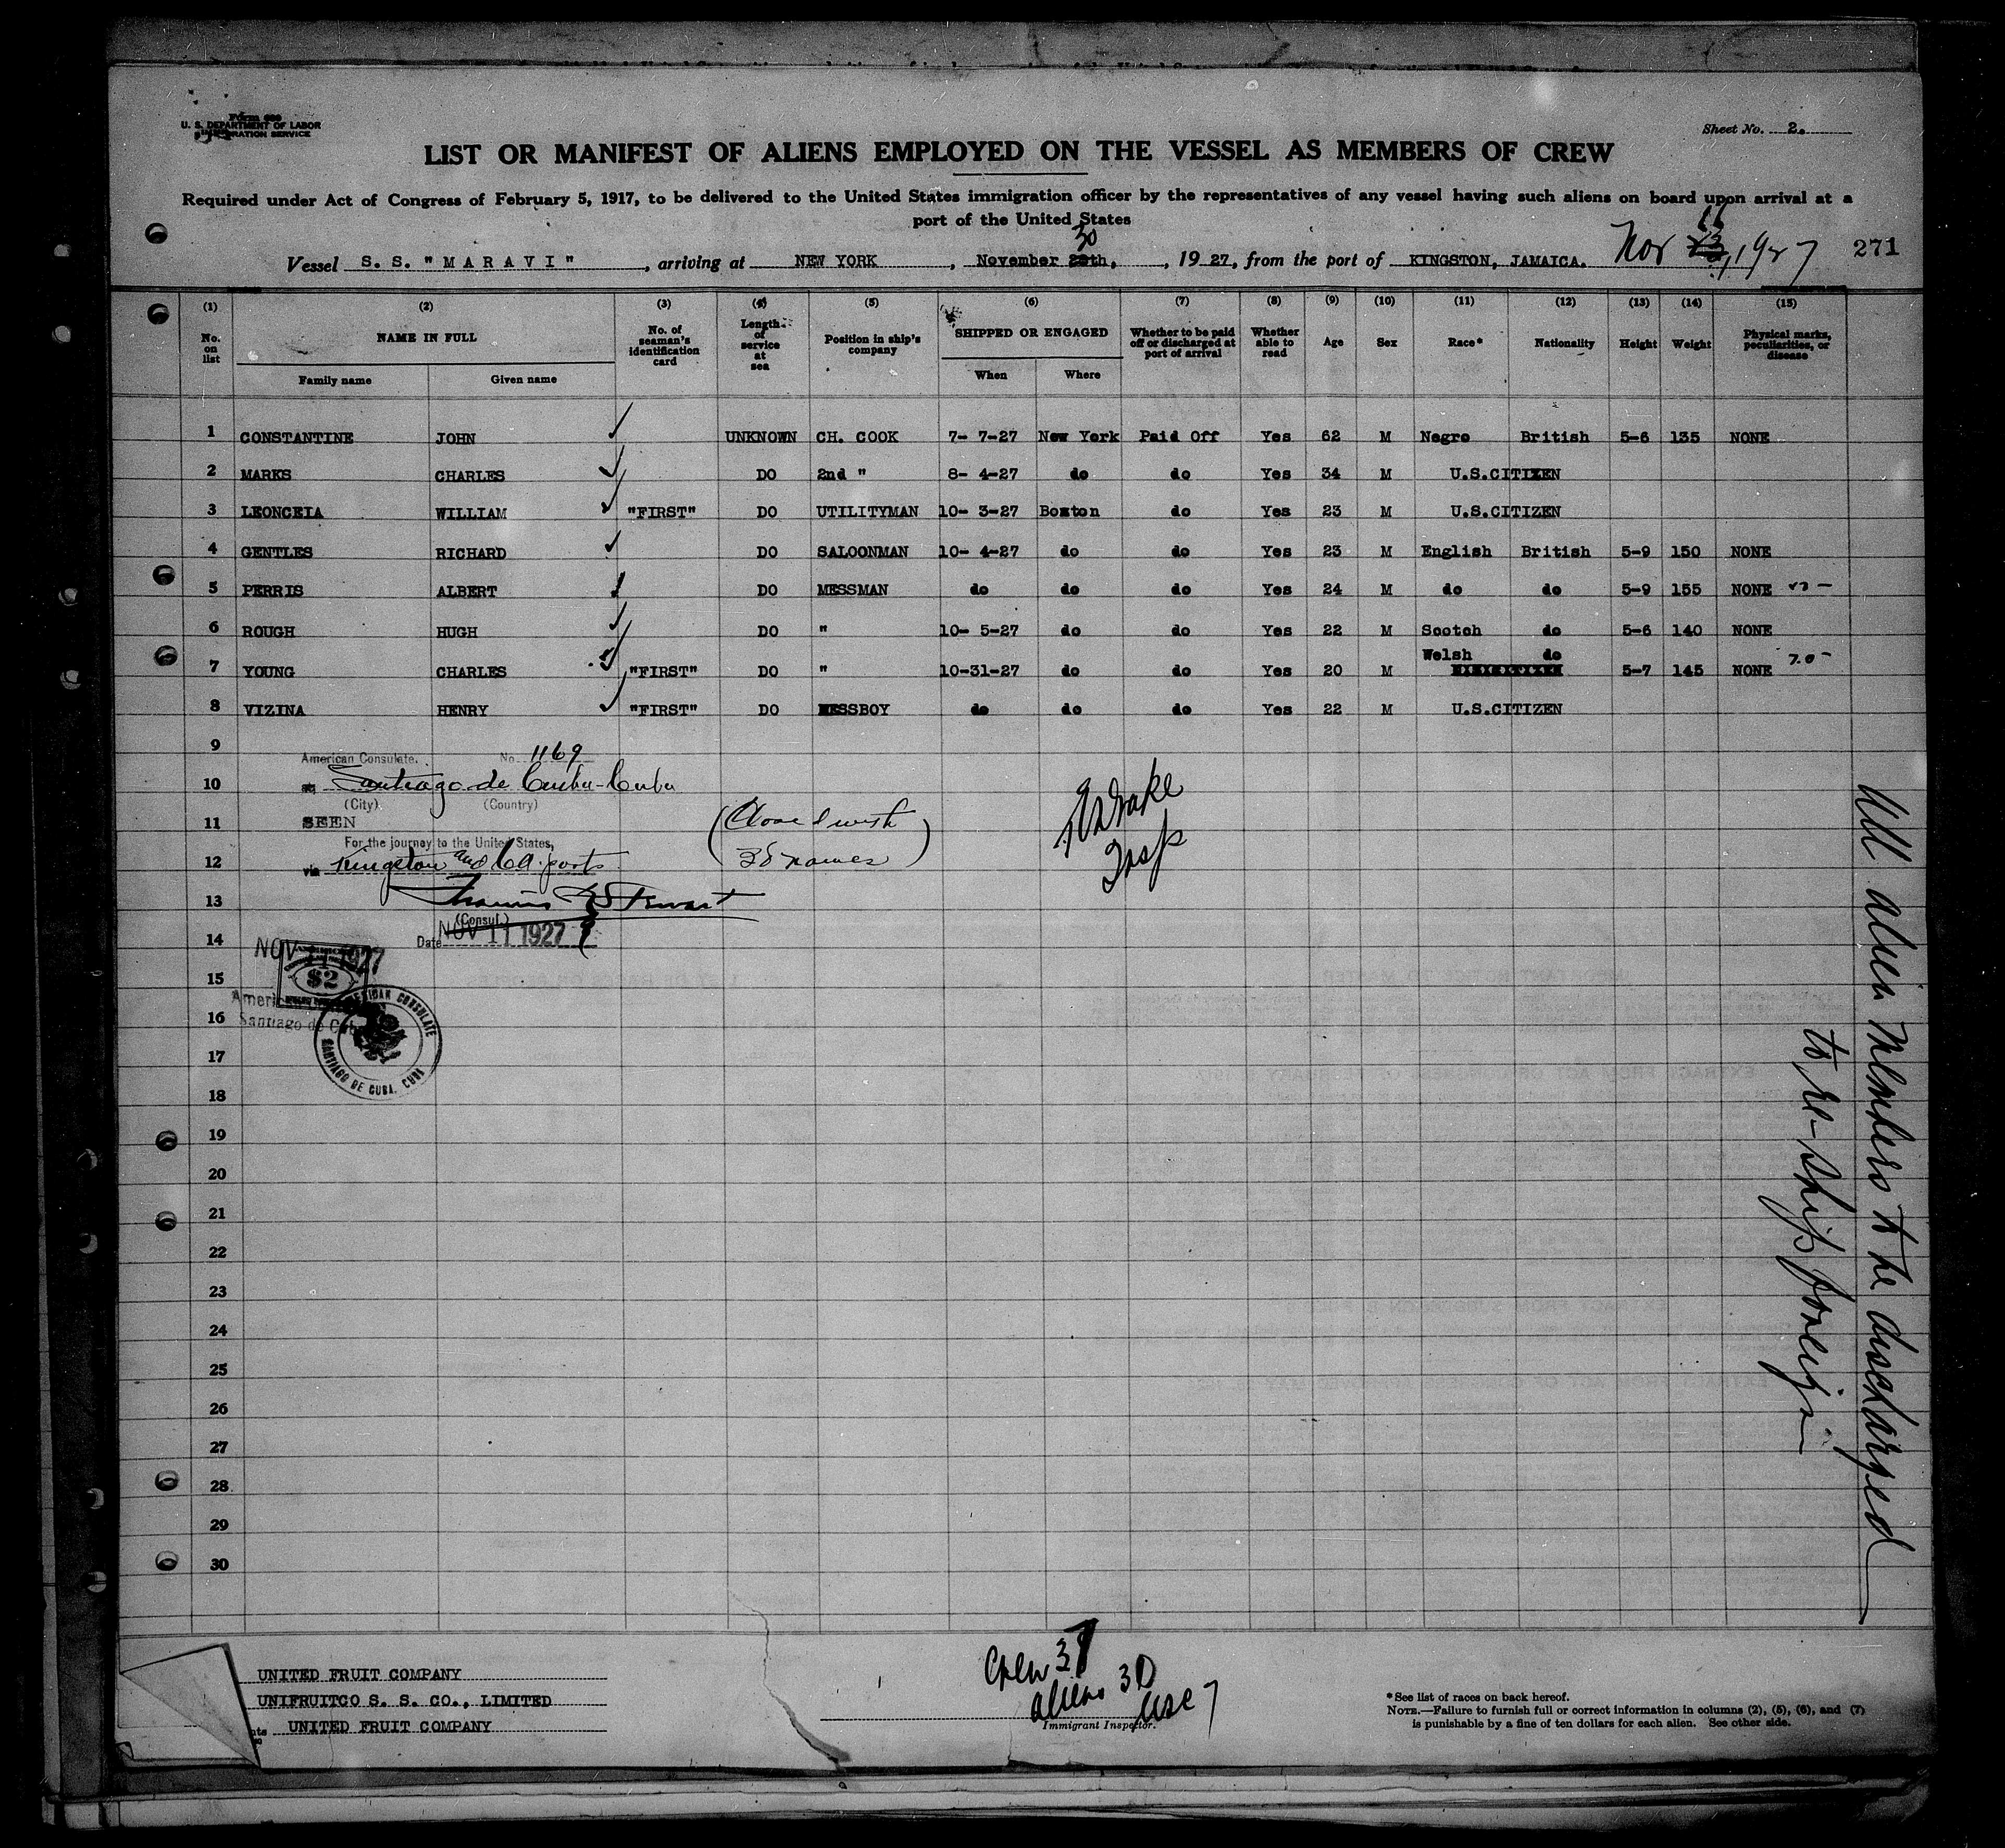 U. S. DEPARTMENT OF LABOR
IMMIGRATION SERVICE
Sheet No. 2.
LIST OR MANIFEST OF ALIENS EMPLOYED ON THE VESSEL AS MEMBERS OF CREW
Required under Act of Congress of February 5, 1917, to be delivered to the United States immigration officer by the representatives of any vessel having such aliens on board upon arrival at a
port of the United States
30
Vessel S. S. "MARAVI", arriving at NEW YORK, November 28th, 1927, from the port of KINGSTON, JAMAICA. Nov 1927 271
(1) (2) (3) (4) (5) (6) (7) (8) (9) (10) (11) (12) (13) (14) (15)
No. on list NAME IN FULL No. of seaman's identification card Length of service at sea Position in ship's company SHIPPED OR ENGAGED Whether to be paid off or discharged at port of arrival Whether able to read Age Sex Race* Nationality Height Weight Physical marks, peculiarities, or disease
Family name Given name When Where
1 CONSTANTINE JOHN UNKNOWN CH. COOK 7- 7-27 New York Paid Off Yes 62 M Negro British 5-6 135 NONE
2 MARKS CHARLES DO 2nd " 8- 4-27 do do Yes 34 M U.S.CITIZEN
3 LEONCEIA WILLIAM "FIRST" DO UTILITYMAN 10- 3-27 Boston do Yes 23 M U.S.CITIZEN
4 GENTLES RICHARD DO SALOONMAN 10- 4-27 do do Yes 23 M English British 5-9 150 NONE
5 PERRIS ALBERT DO MESSMAN do do do Yes 24 M do do 5-9 155 NONE
6 ROUGH HUGH DO " 10- 5-27 do do Yes 22 M Scotch do 5-6 140 NONE
Welsh do
7 YOUNG CHARLES "FIRST" DO " 10-31-27 do do Yes 20 M 5-7 145 NONE
8 VIZINA HENRY "FIRST" DO MESSBOY do do do Yes 22 M U.S.CITIZEN
9
American Consulate. No. 1169
10
at Santiago de Cuba-Cuba
(City) (Country)
11
SEEN
(Closed with
For the journey to the United States,
12
via Kingston and CA ports
38 names)
Drake
Insp
13
(Consul)
14
Date NOV 11 1927
NOV 11 1927
$2
15
American
16
Santiago de Cuba
AMERICAN CONSULATE
SANTIAGO DE CUBA, CUBA
17
18
19
20
21
22
23
24
25
26
27
28
29
30
All alien members to be discharged
to re-ship foreign
UNITED FRUIT COMPANY
UNIFRUITCO S. S. CO., LIMITED
UNITED FRUIT COMPANY
Crew 37
aliens 30
usc 7
Immigrant Inspector.
*See list of races on back hereof.
NOTE.—Failure to furnish full or correct information in columns (2), (5), (6), and (7)
is punishable by a fine of ten dollars for each alien. See other side.